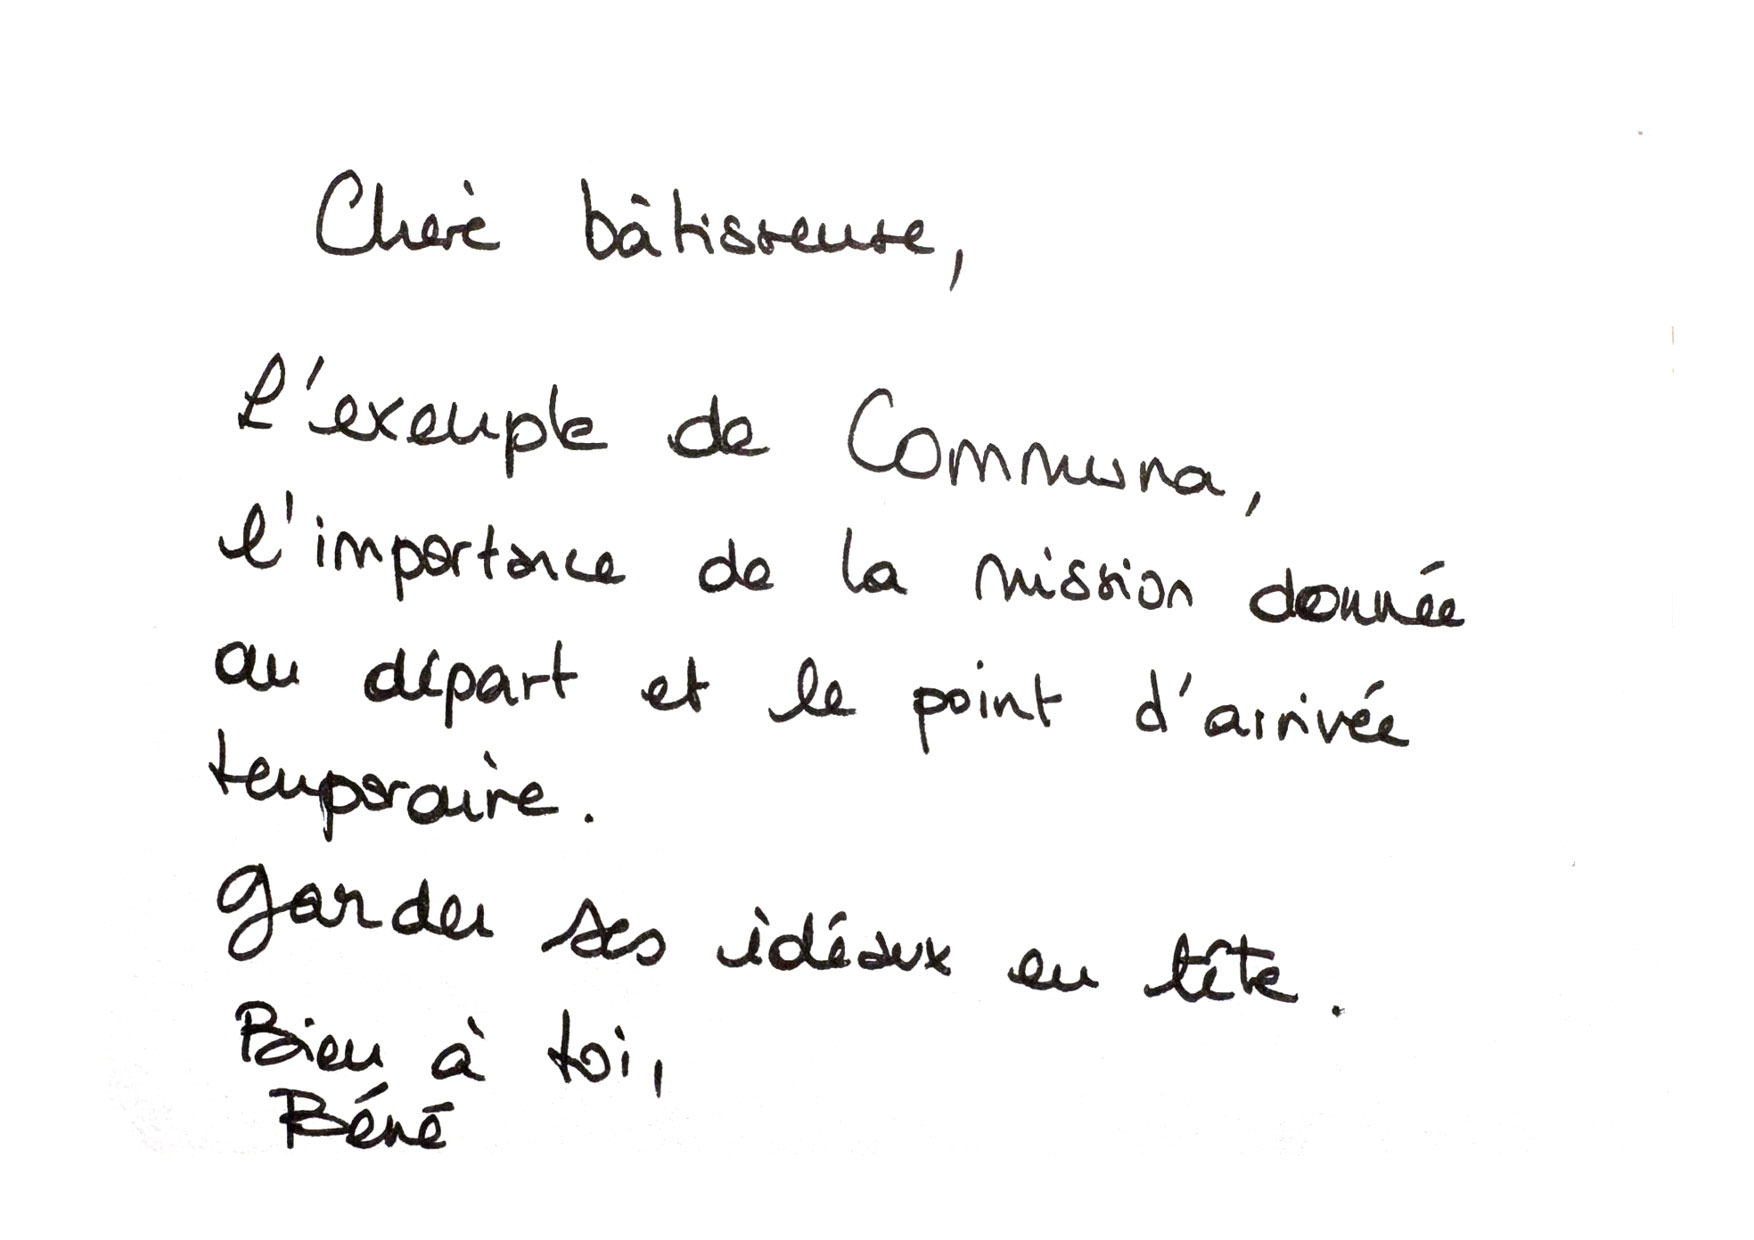 Chère bâtisseuse,
L'exemple de Communa,
l'importance de la mission donnée
au départ et le point d'arrivée
temporaire.
Garder ses idéaux en tête.
Bien à toi,
Béné